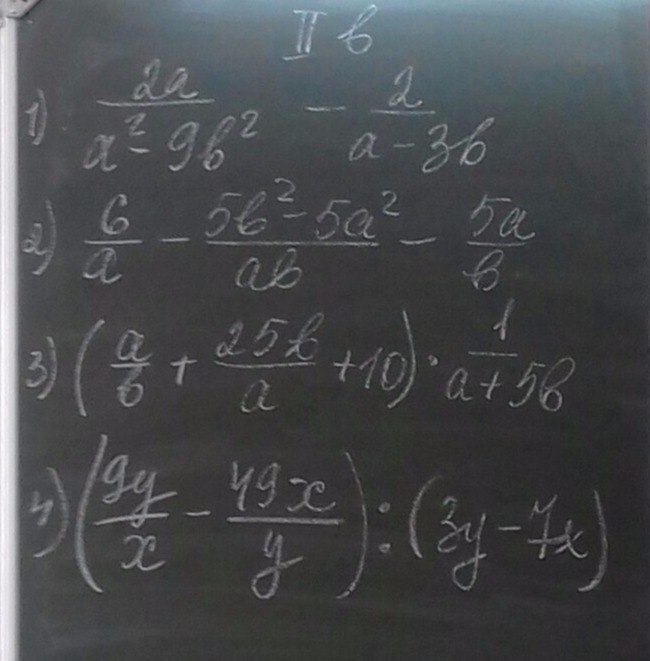 II в
1) \frac{2a}{a^2-9b^2} - \frac{2}{a-3b}
2) \frac{6}{a} - \frac{5b^2-5a^2}{ab} - \frac{5a}{b}
3) (\frac{a}{b} + \frac{25b}{a} + 10) \cdot \frac{1}{a+5b}
4) (\frac{9y}{x} - \frac{49x}{y}) : (3y-7x)